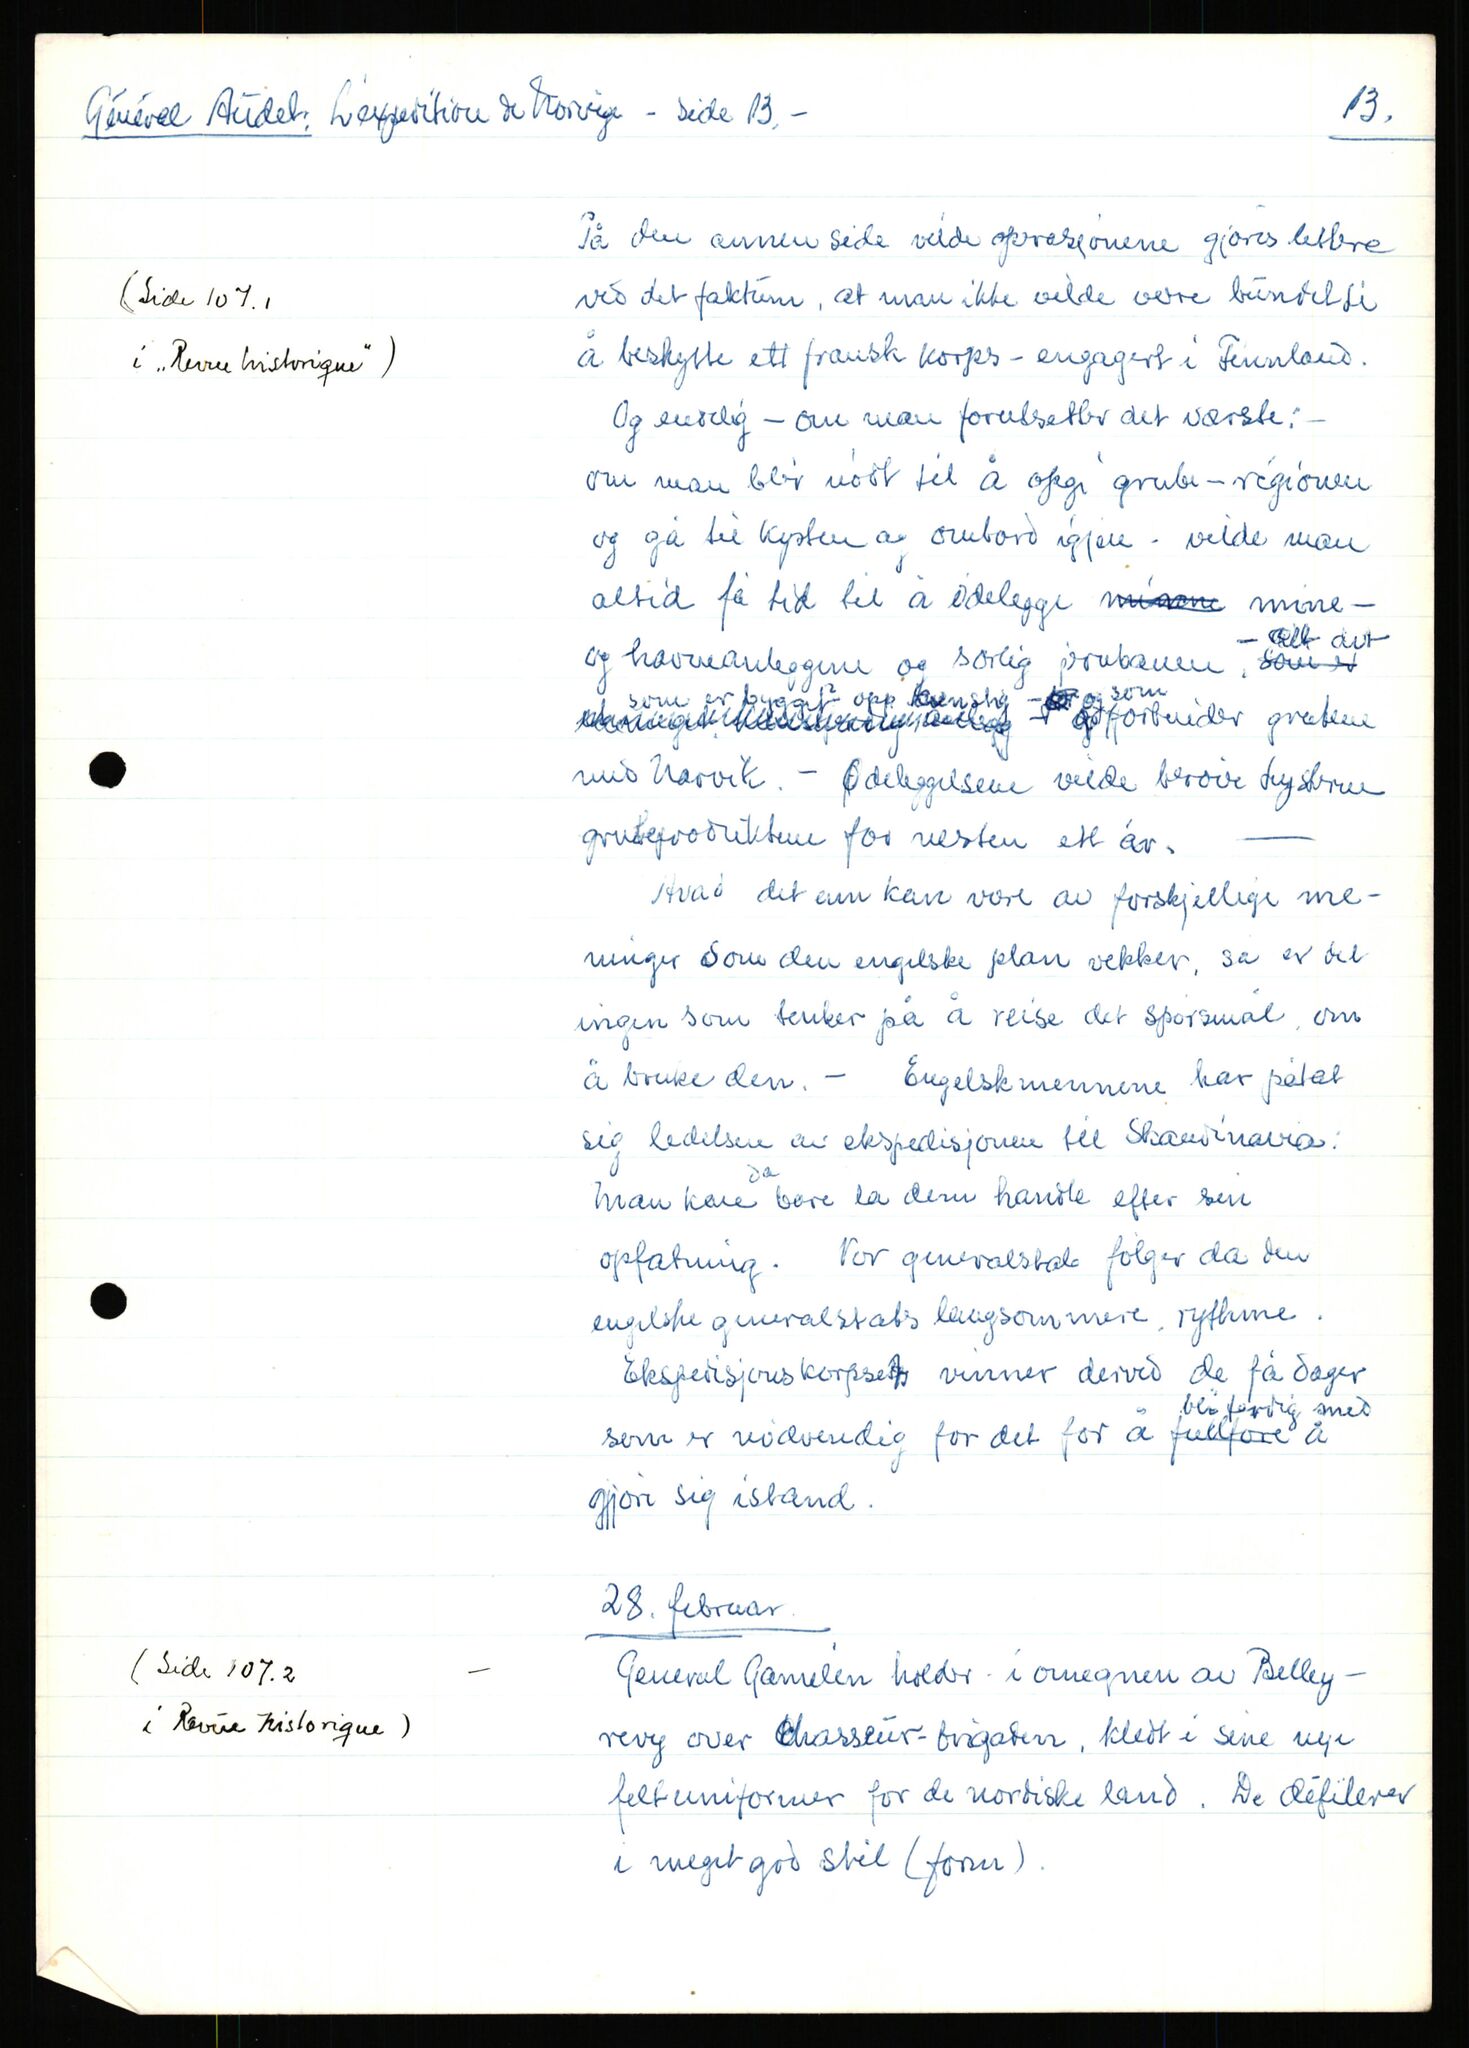 Général Audet: L'expedition de Norvège - side 13.-
13.
På den annen side vilde operasjonene gjöres lettere
(Side 107.1
ved det faktum, at man ikke vilde være bundet til
i „Revue historique")
å beskytte ett fransk korps - engagert i Finnland.
Og endelig - om man forutsetter det værste: -
om man blir nödt til å opgi grube-regionen
og gå til kysten og ombord igjen - vilde man
altid få tid til å ödelegge minene mine-
og havneanleggene og særlig jernbanen, som er - alt det
som er bygget opp kunstig - og som
forbinder grubene
med Narvik. - Ödeleggelsene vilde beröve tyskerne
grubeproduktene for nesten ett år. —
Hvad det enn kan være av forskjellige me-
ninger som den engelske plan vekker, så er det
ingen som tenker på å reise det spörsmål, om
å bruke den. - Engelskmennene har påtat
sig ledelsen av ekspedisjonen til Skandinavia:
Man kan da bare la dem handle efter sin
opfatning. Vor generalstab fölger da den
engelske generalstabs langsommere rythme.
Ekspedisjonskorpset vinner derved de få dager
som er nödvendig for det for å fullföre bli ferdig med å
gjöre sig istand.
28. februar.
(Side 107.2 -
General Gamelin holder - i omegnen av Belley -
i Revue historique)
revy over Chasseur-brigaden, kledt i sine nye
feltuniformer for de nordiske land. De défilerer
i meget god stil (form).